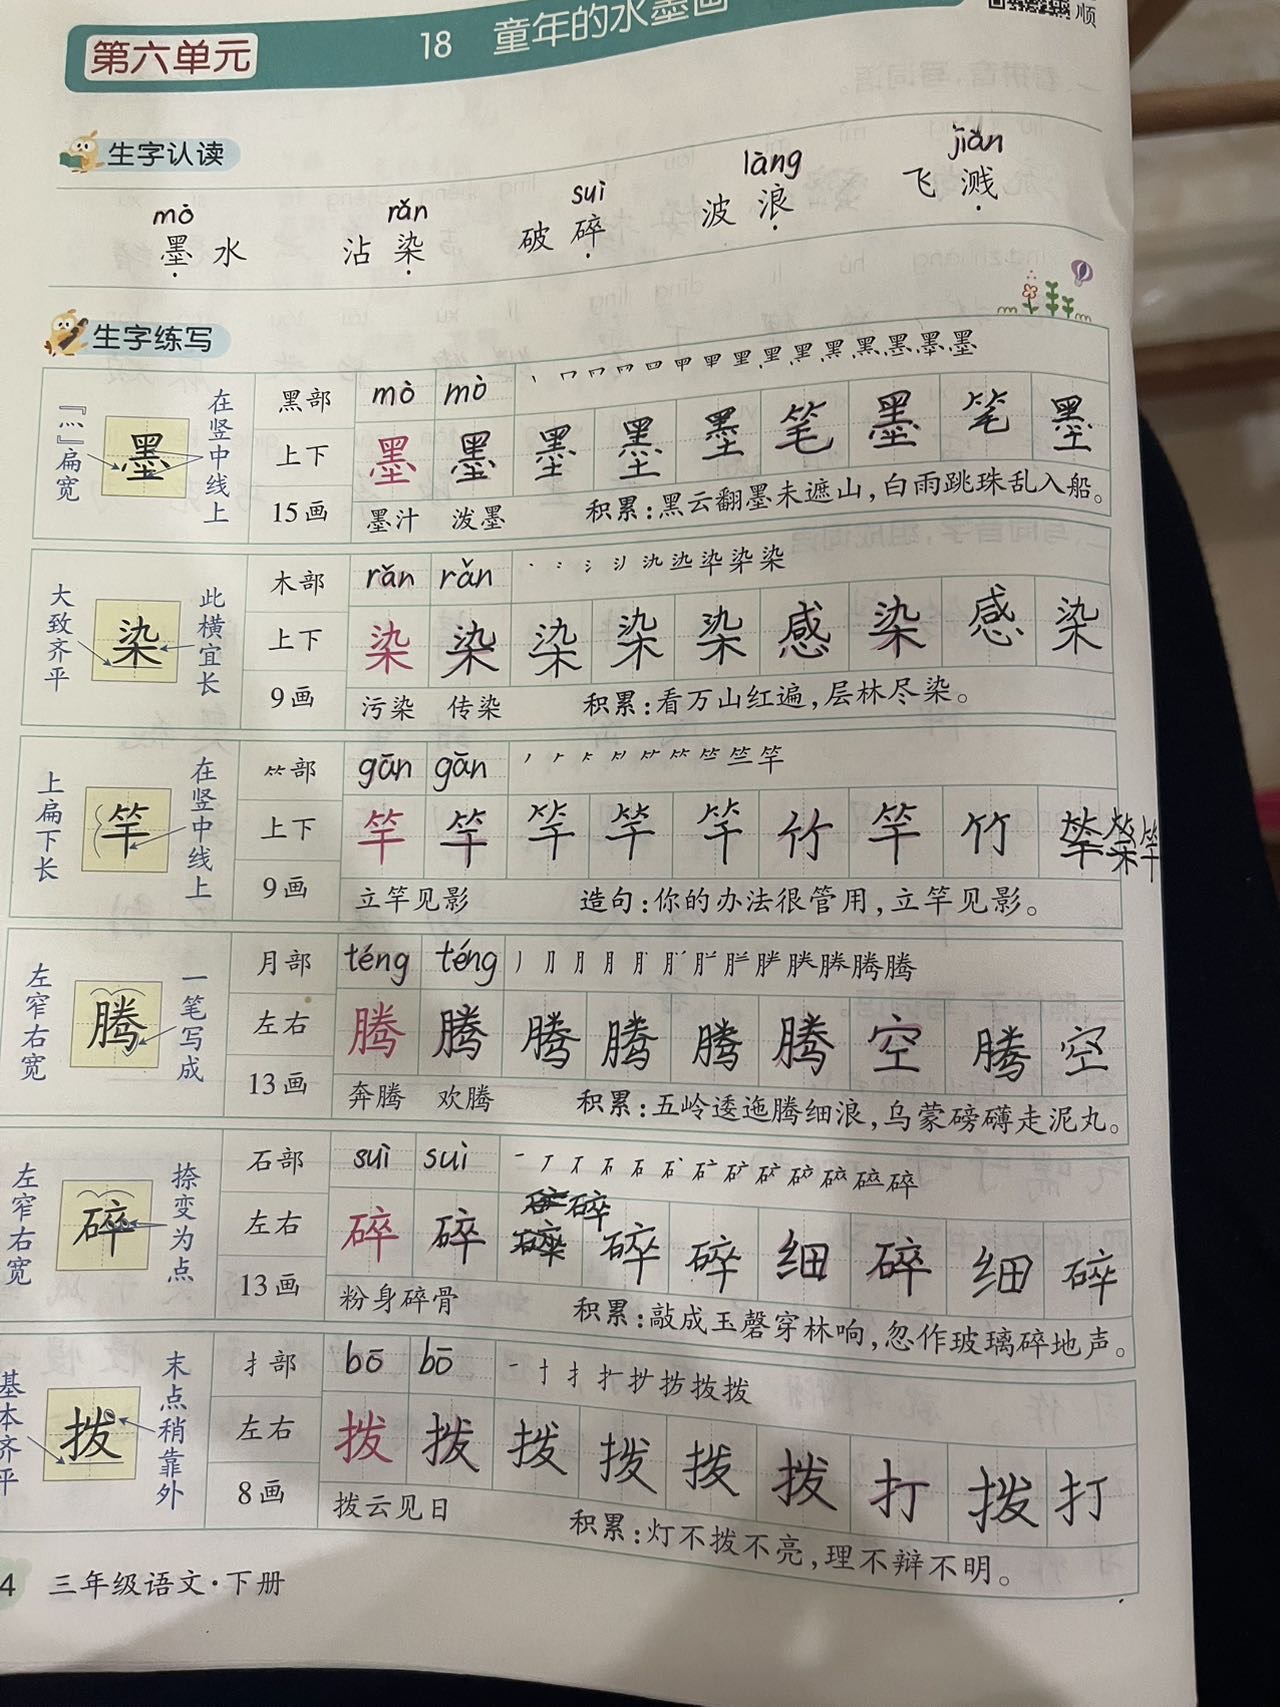 第六单元
18 童年的水墨画
顺
生字认读
mò rǎn suì làng jiàn
墨水 沾染 破碎 波浪 飞溅
生字练写
“灬”扁宽 墨 在竖中线上
黑部 mò mò 丶 冂
上下 墨 墨 墨 墨 墨 笔 墨 笔 墨
15画 墨汁 泼墨 积累:黑云翻墨未遮山,白雨跳珠乱入船。
大致齐平 染 此横宜长
木部 rǎn rǎn
上下 染 染 染 染 染 感 染 感 染
9画 污染 传染 积累:看万山红遍,层林尽染。
上扁下长 竿 在竖中线上
⺮部 gān gān
上下 竿 竿 竿 竿 竿 竹 竿 竹 竿
9画 立竿见影 造句:你的办法很管用,立竿见影。
左窄右宽 腾 一笔写成
月部 téng téng
左右 腾 腾 腾 腾 腾 腾 空 腾 空
13画 奔腾 欢腾 积累:五岭逶迤腾细浪,乌蒙磅礴走泥丸。
左窄右宽 碎 捺变为点
石部 suì suì
碎
左右 碎 碎 碎 碎 细 碎 细 碎
13画 粉身碎骨 积累:敲成玉磬穿林响,忽作玻璃碎地声。
基本齐平 拨 末点稍靠外
扌部 bō bō
左右 拨 拨 拨 拨 拨 拨 打 拨 打
8画 拨云见日 积累:灯不拨不亮,理不辩不明。
4 三年级语文·下册